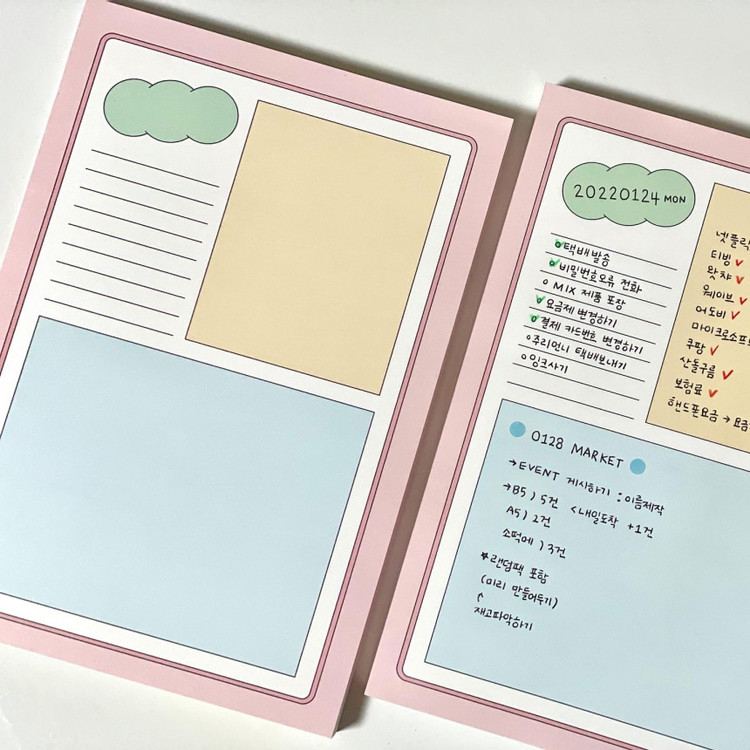 20220124 MON
택배발송
비밀번호오류 전화
MIX 제품 포장
요금제 변경하기
결제 카드번호 변경하기
주리언니 택배보내기
잉크사기
넷플릭
티빙
왓챠
웨이브
어도비
마이크로소프트
쿠팡
산돌구름
보험료
핸드폰요금 → 요금
0128 MARKET
→EVENT 게시하기 : 이름제작
→B5) 5건 <내일도착 +1건
A5) 2건
소떡메) 3건
*랜덤팩 포함
(미리 만들어두기)
↑
재고파악하기